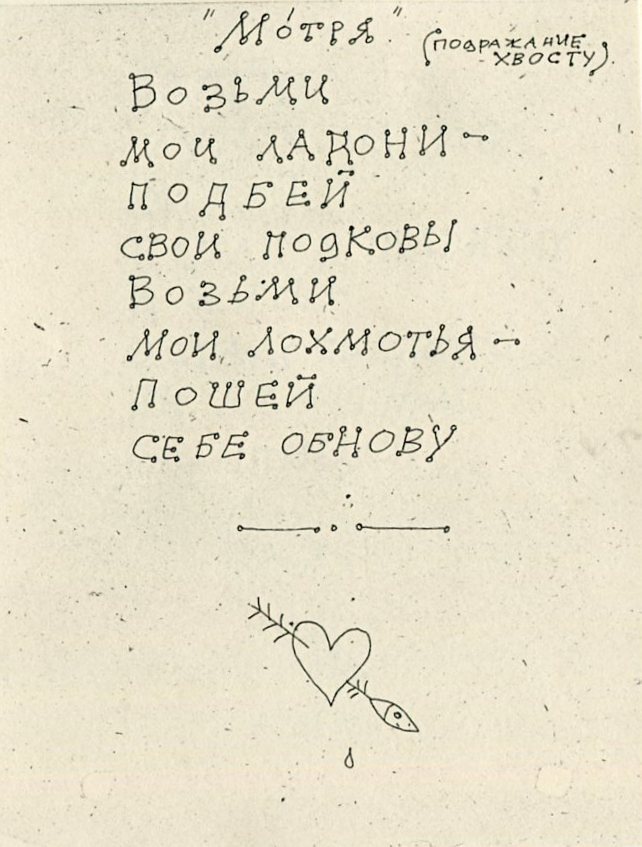 "Мо́тря"
(подражание
хвосту).
Возьми
мои ладони –
подбей
свои подковы
Возьми
мои лохмотья –
пошей
себе обнову